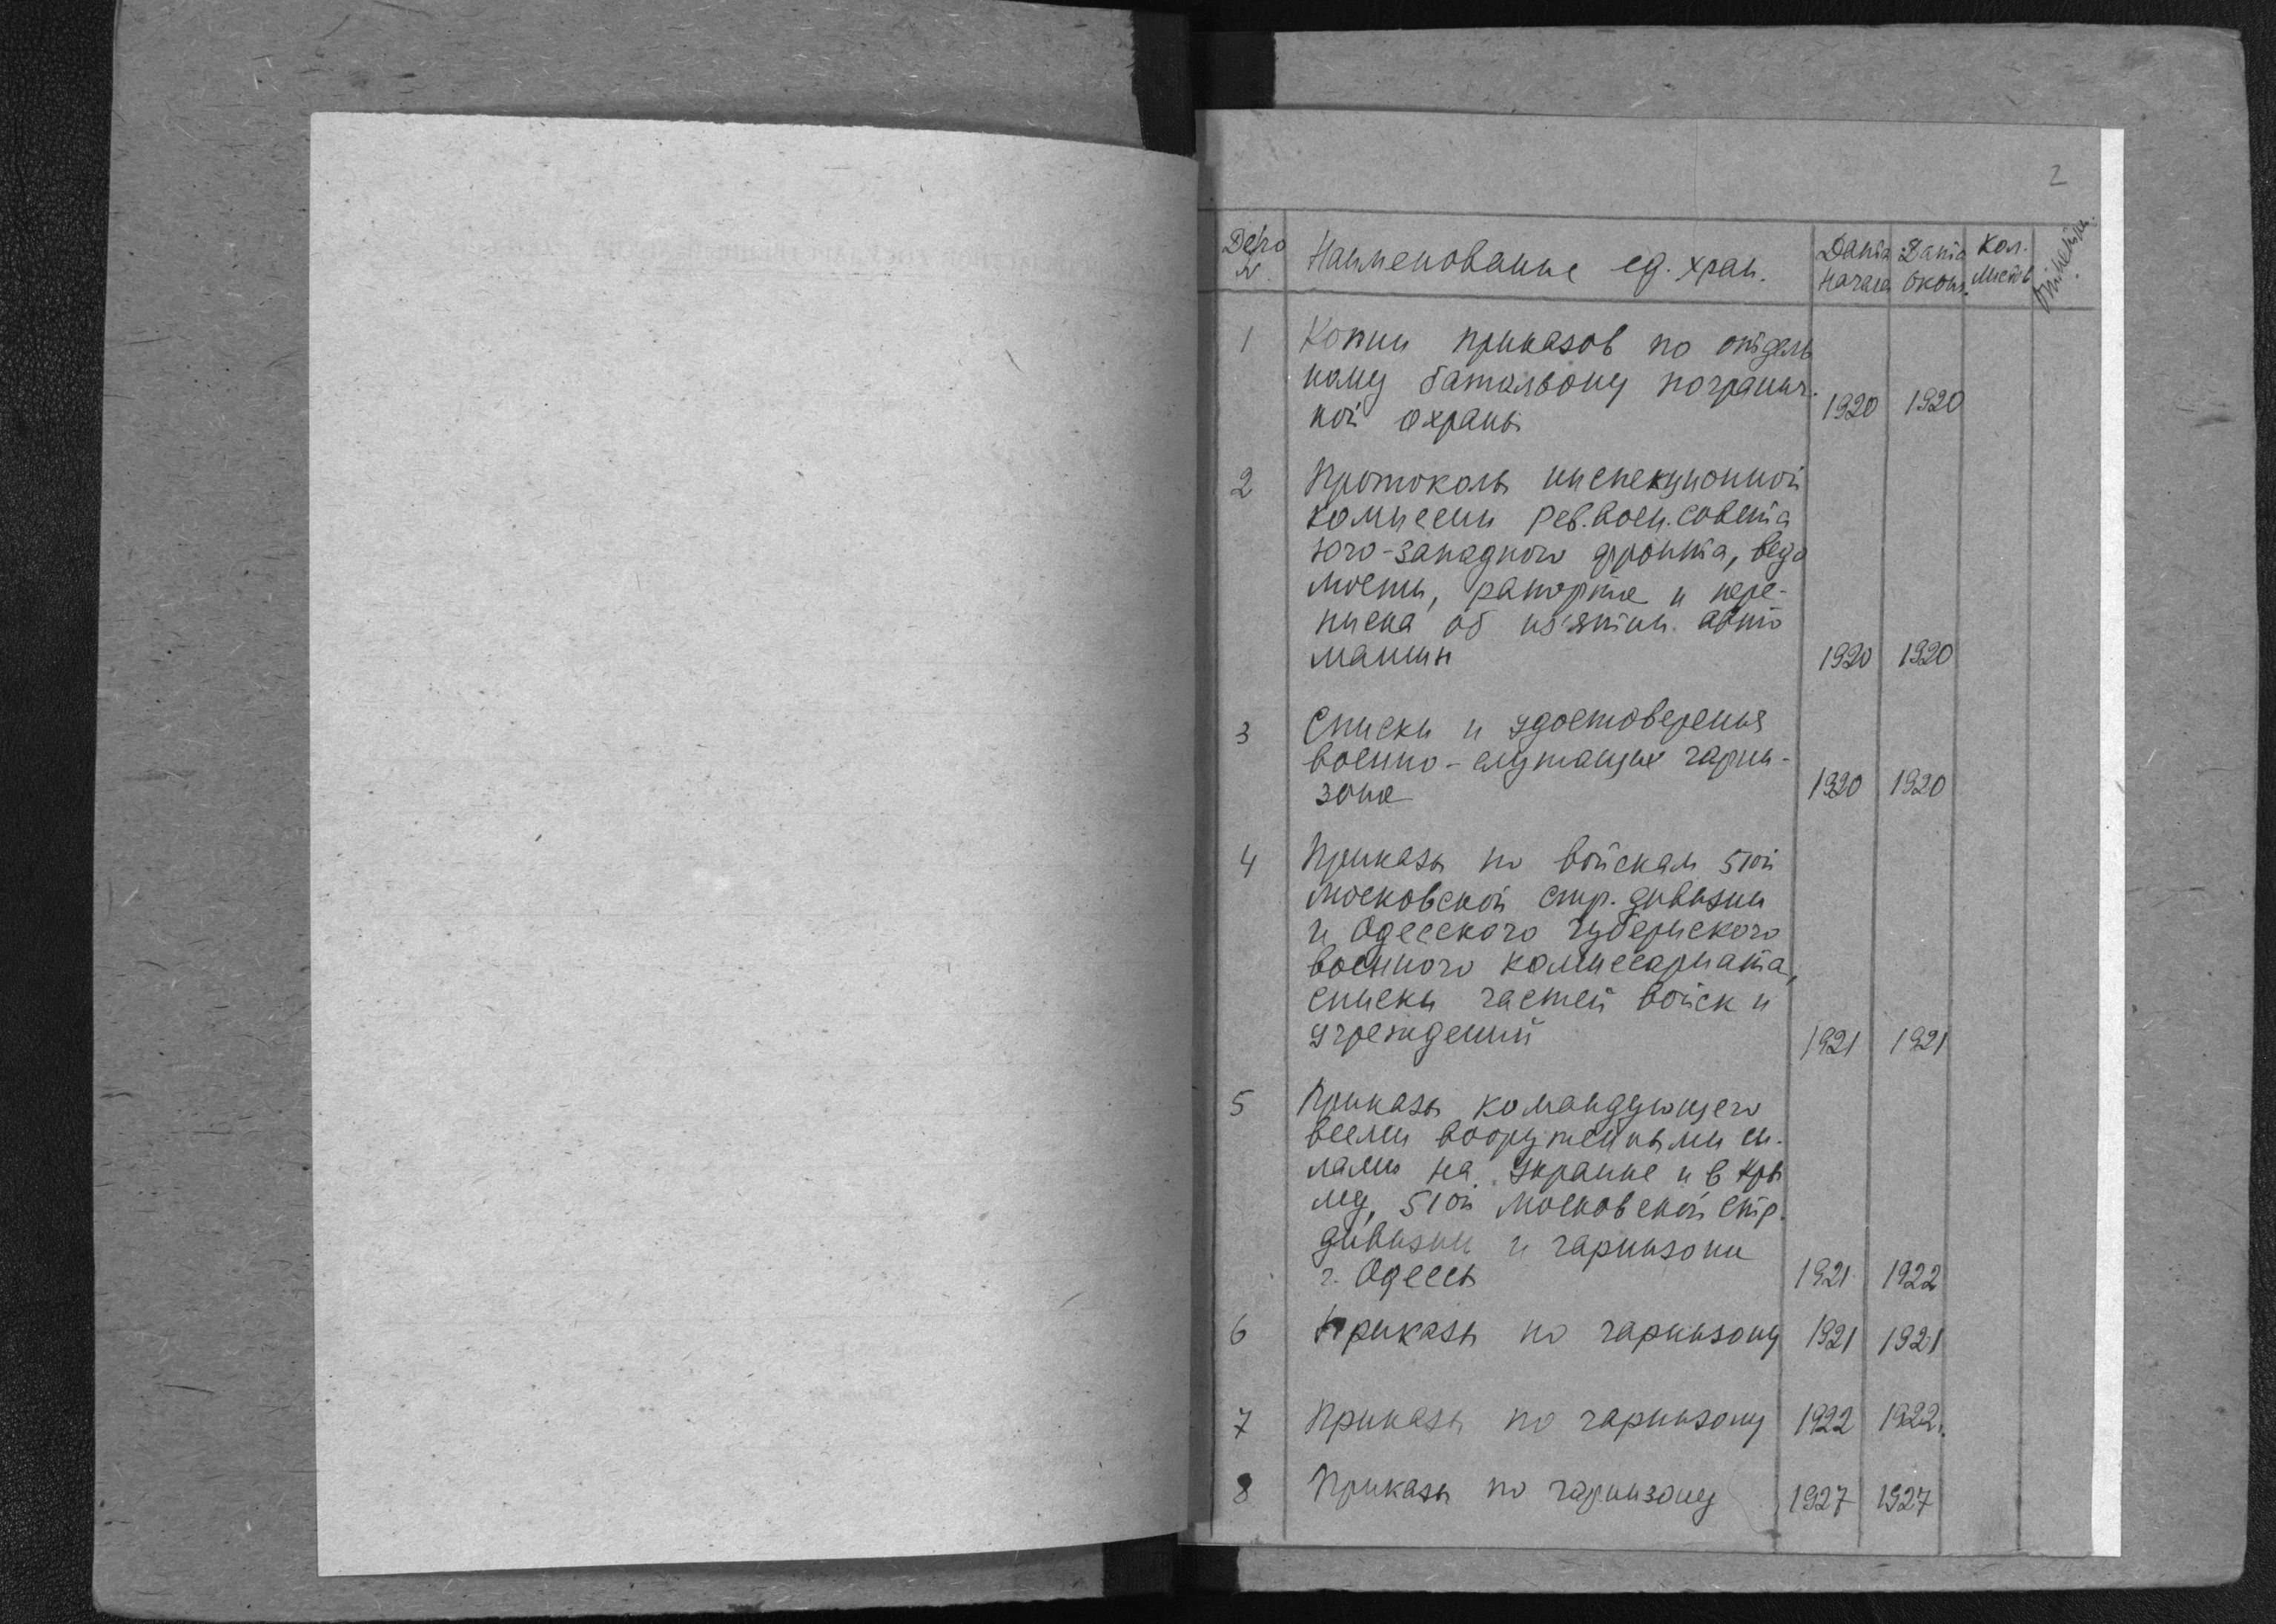 2
Дело № Наименование ед. хран. Дата начала Дата оконч. Кол. листов
1 Копии приказов по отдель
ному батальону погранич.
ной охраны 1920 1920
2 Протоколы инспекционной
комиссии Рев. Воен. Совета
Юго-Западного фронта, ведо
мости, рапорты и пере-
писка об из'ятии авто
машин 1920 1920
3 Списки и удостоверения
военно-служащих гарни-
зона 1920 1920
4 Приказы по войскам 51ой
Московской стр. дивизии
и Одесского губернского
военного комиссариата,
списки частей войск и
учреждений 1921 1921
5 Приказы командующего
всеми вооруженными си-
лами на Украине и в Кры
му, 51ой Московской стр.
дивизии и гарнизона
г. Одессы 1921 1922
6 Приказы по гарнизону 1921 1921
7 Приказы по гарнизону 1922 1922.
8 Приказы по гарнизону 1927 1927